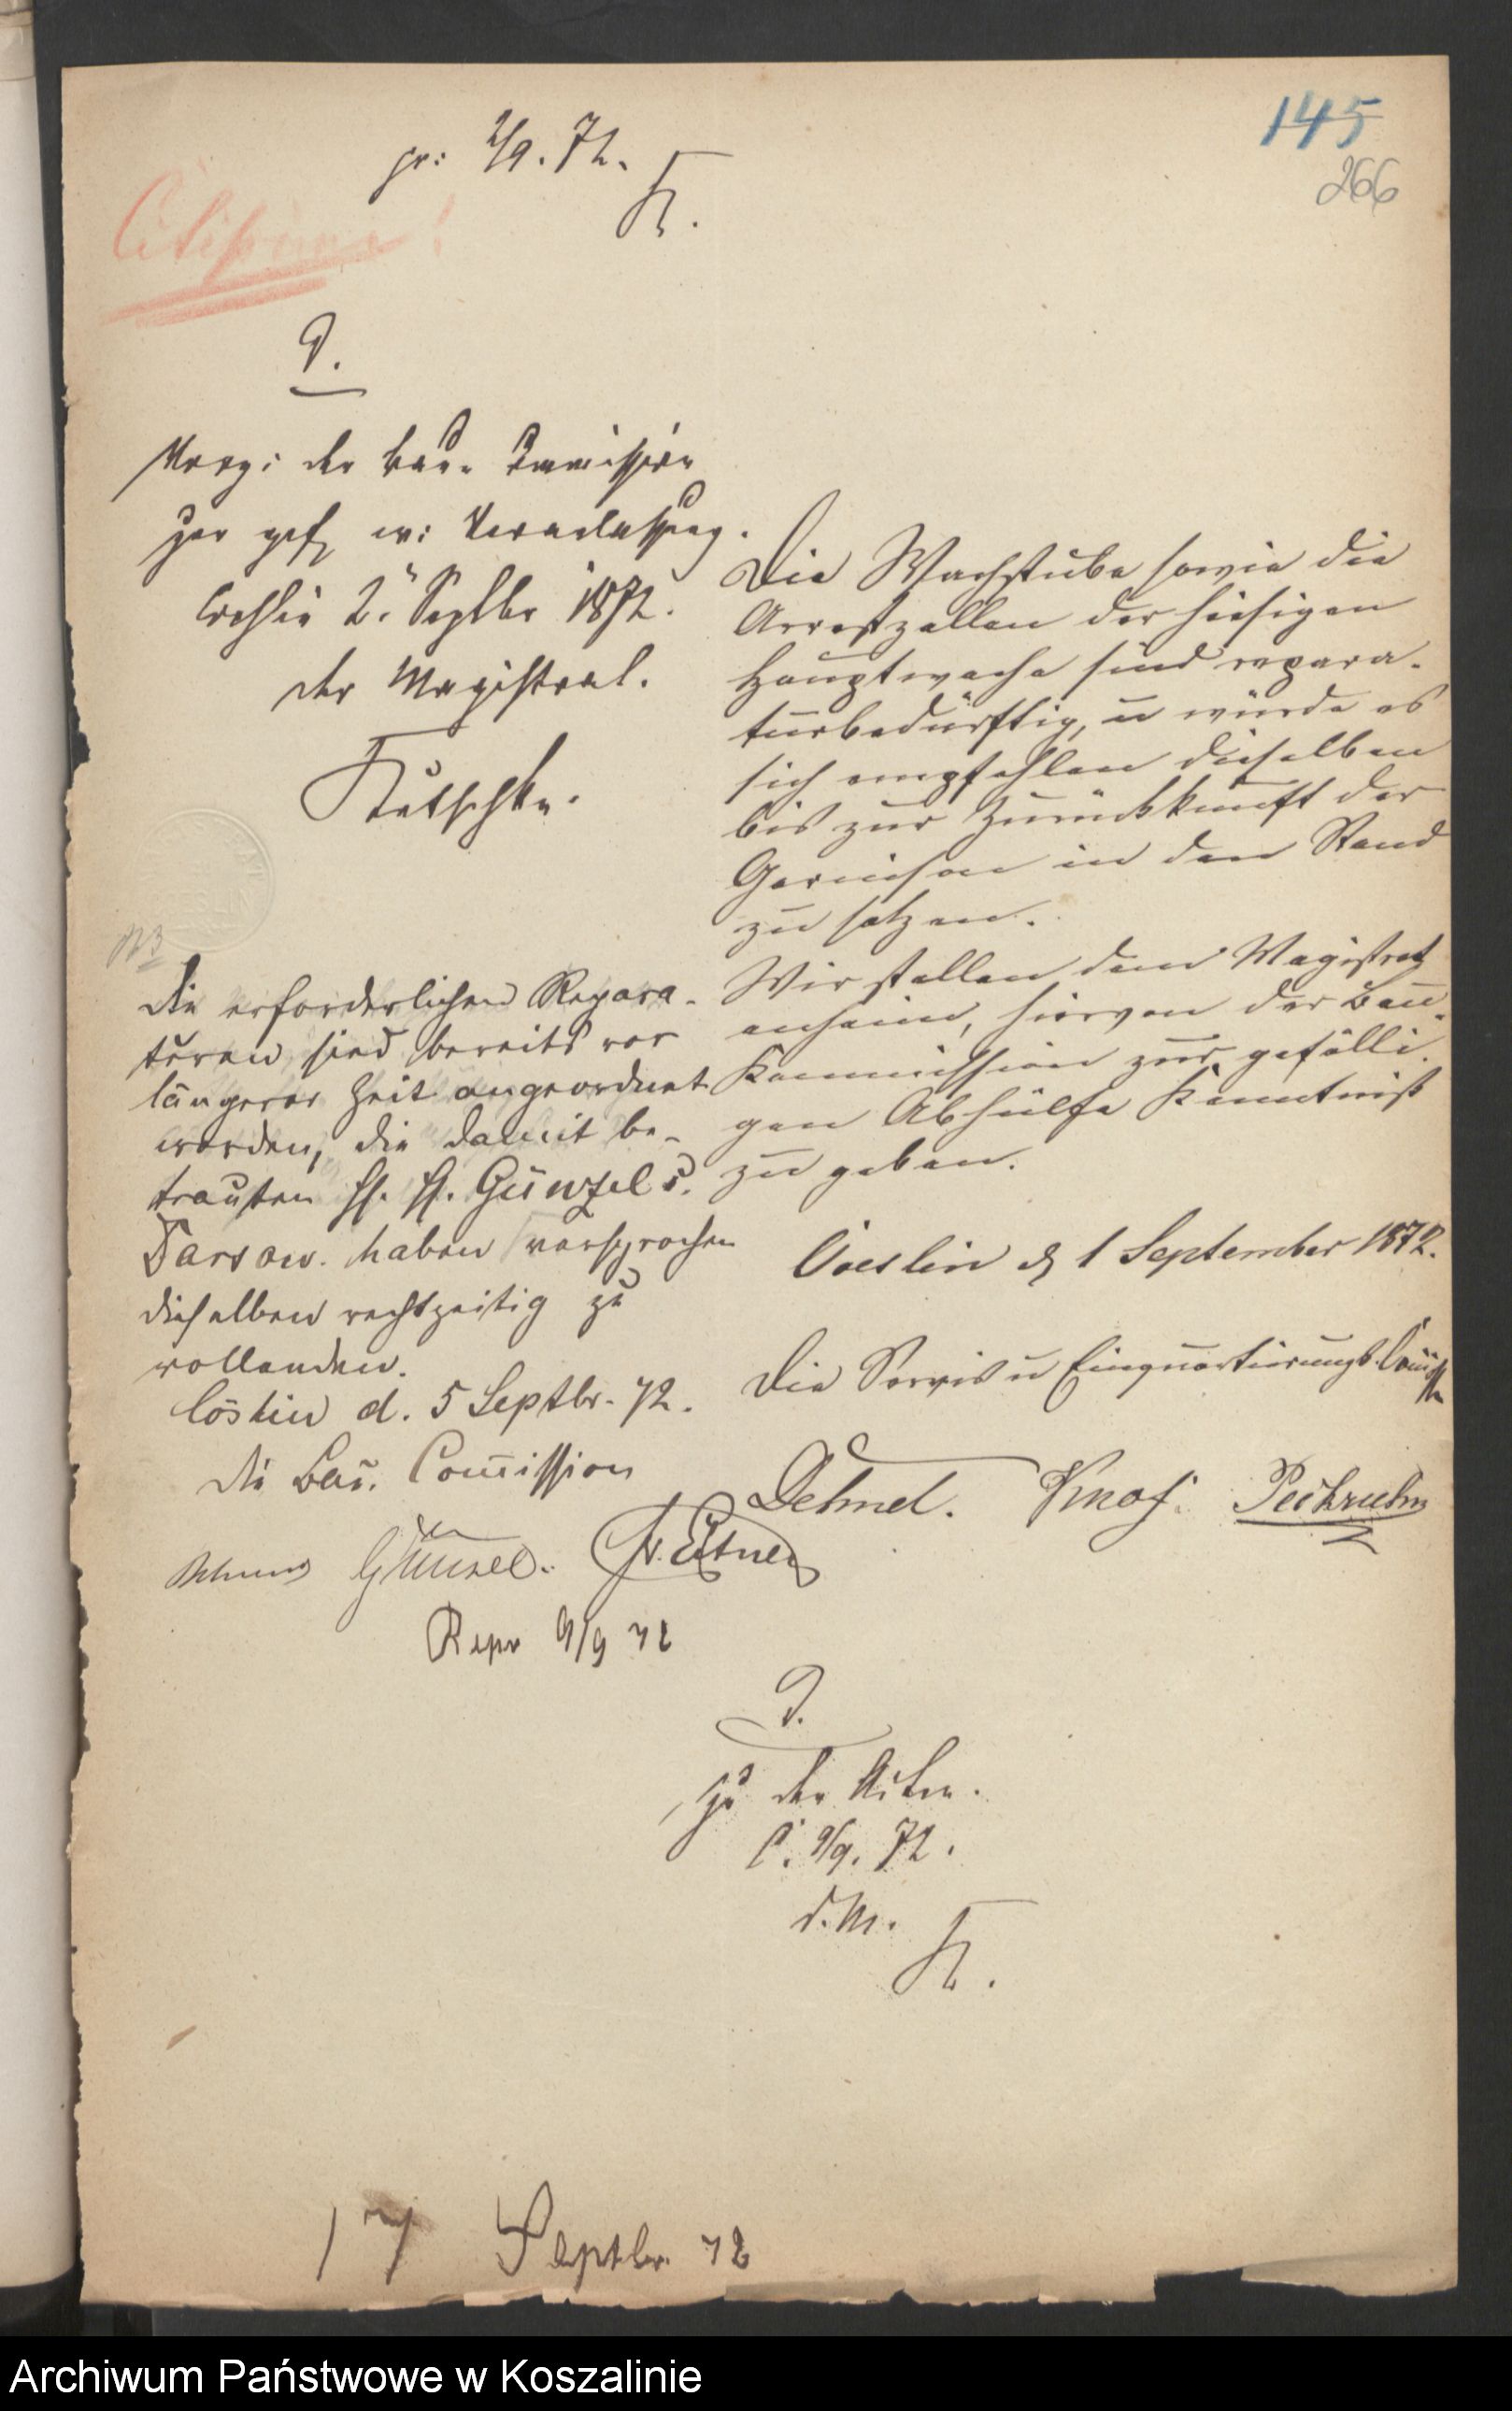 145
266
pr: 2/9. 72.
K.
Citissime!
V.
der Bau-Commission
zur gef. w: Veranlassung.
Coeslin 2. Septbr 1872.
der Magistrat.
Kutschke.
Die Wachstube sowie die
Arrestzellen der hiesigen
Hauptwache sind repara-
turbedürftig, u würde es
sich empfehlen dieselben
bis zur Zurückkunft der
Garnison in den Stand
zu setzen.
Wir stellen dem Magistrat
anheim, hiervon der Bau-
Kommission zur gefälli-
gen Abhülfe Kenntniß
zu geben.
Coeslin d 1 September 1872.
Die Servis u Einquartierungs-Commission
Dehmel. Knof. Peikruhn
NB
Die erforderlichen Repara-
turen sind bereits vor
längerer Zeit angeordnet
worden, die damit be-
trauten H. H. Günzel u.
Darsow. haben versprochen
dieselben rechtzeitig zu
vollenden.
Cöslin d. 5 Septbr. 72.
die Bau. Commission
Günzel. Eitner
Repr 9/9 72
V.
zu den Akten.
C. 9/9. 72.
d. M.
K.
17 Septbr. 72
Archiwum Państwowe w Koszalinie